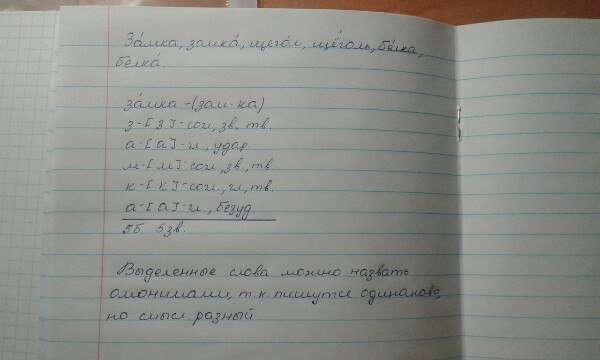 За́мка, замка́, щего́л, щёголь, бе́лка,
белка́.
за́мка -(зам-ка)
з-[з]-сог., зв., тв.
а-[а]-гл., удар
м-[м]-сог., зв., тв
к-[к]-сог., гл., тв.
а-[а]-гл., безуд.
5б. 5зв.
Выделенные слова можно назвать
омонимами, т.к. пишутся одинаково,
но смысл разный